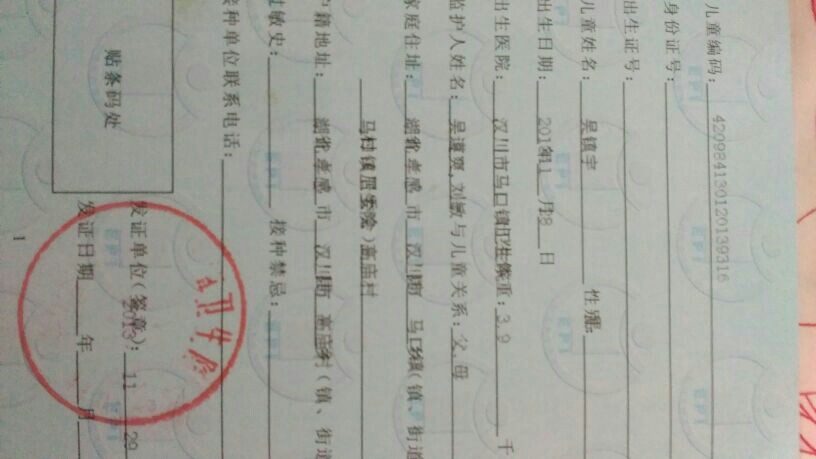 儿童编码: 420984130120139316
身份证号:
出生证号:
儿童姓名: 吴镇宇 性别:
出生日期: 年11月18日
出生医院: 汉川市马口镇卫生 体重: 3.9 千
监护人姓名: 吴 刘敏 与儿童关系: 父,母
家庭住址: 湖北 孝感 市 汉川 马口镇(镇、街道
马村镇 高庙村
户籍地址: 湖北 孝感 市 汉川 高庙 (镇、街道
过敏史: 接种禁忌:
接种单位联系电话:
贴条码处
发证单位(签章):
发证日期 2013 年 11 月 29
卫生院
EPI
1